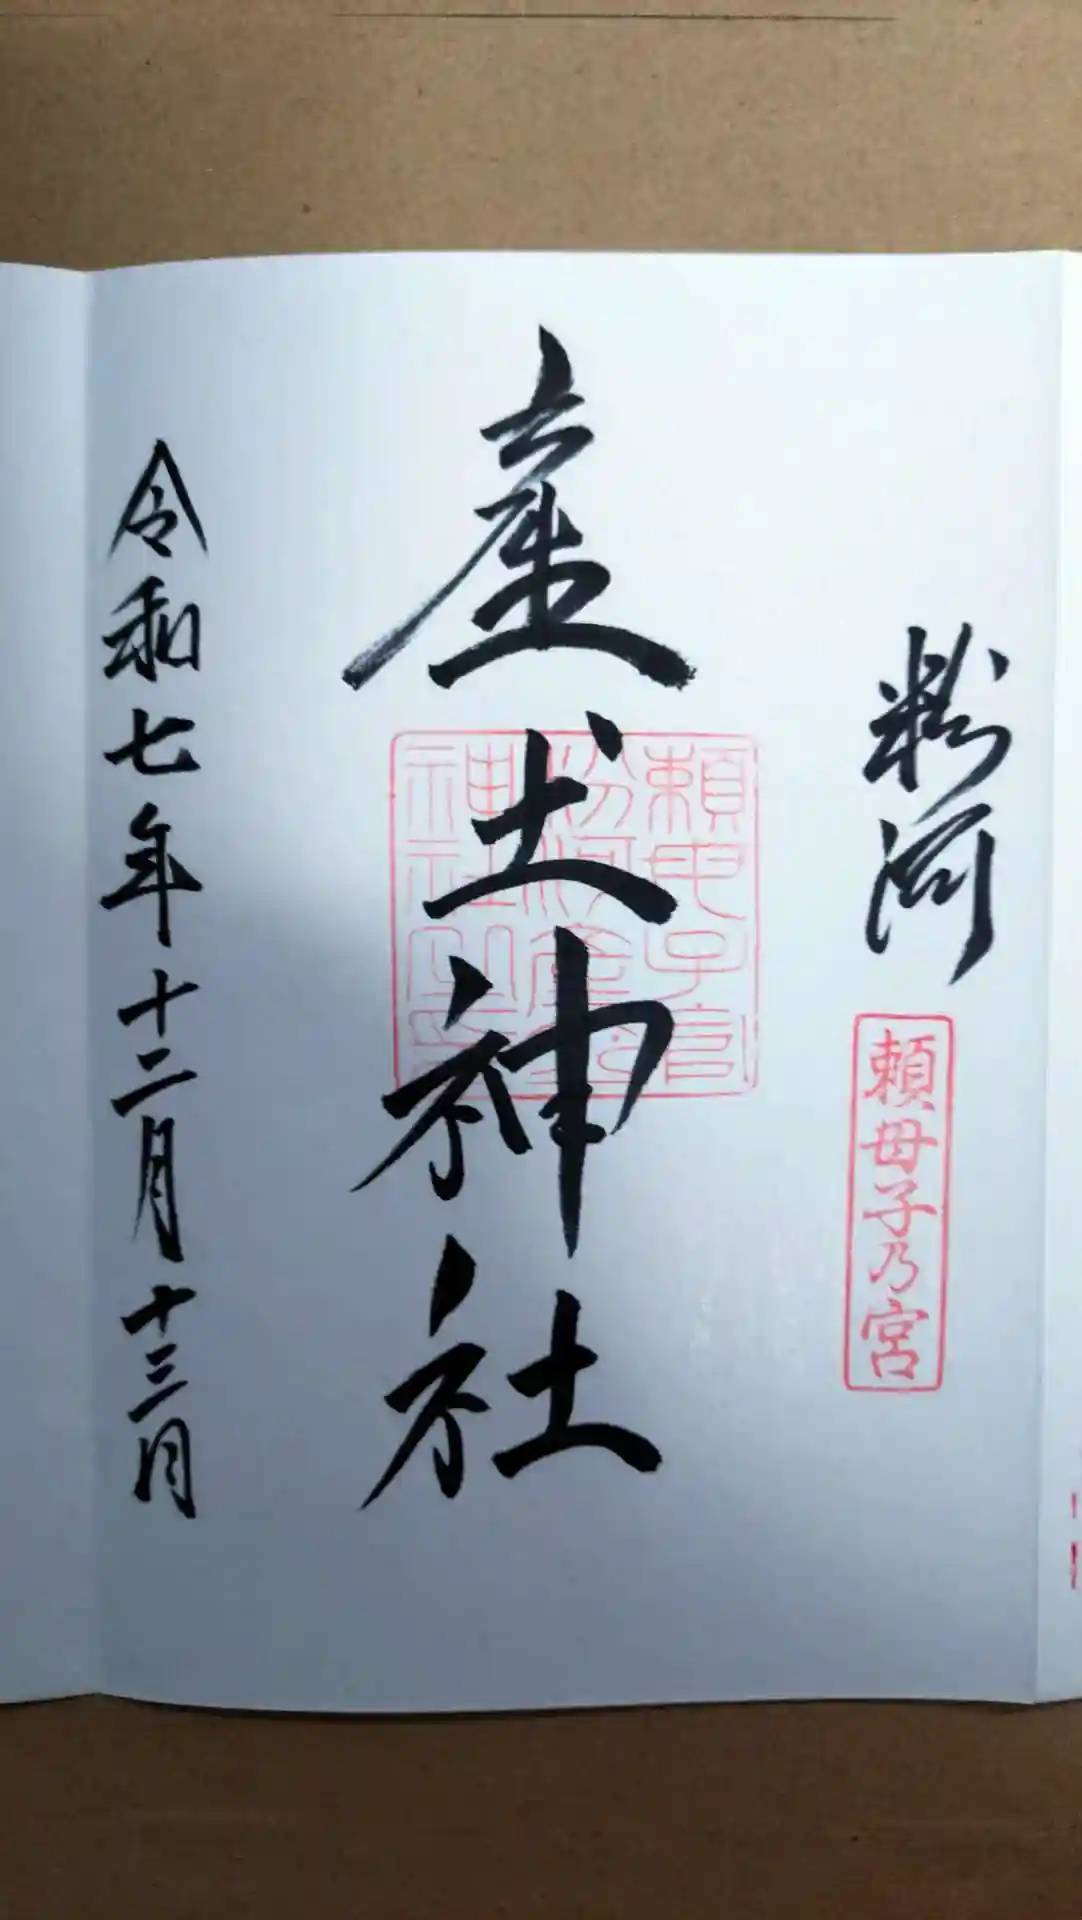 粉河
頼母子乃宮
産土神社
頼母子宮
粉河産土
神社之印
令和七年十二月十三日